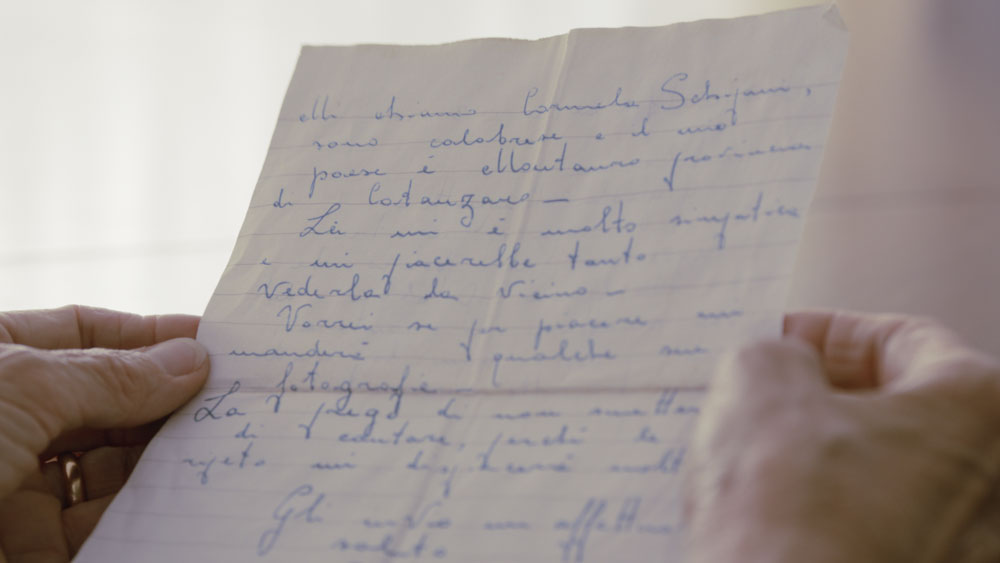 Mi chiamo Carmela
sono calabrese e il mio
paese è Montauro provincia
di Catanzaro —
Lei mi è molto simpatica
e mi piacerebbe tanto
vederla da vicino —
Vorrei se per piacere mi
manderà qualche sua
fotografia
La prego di non smettere
di cantare, perché le
ripeto mi dispiacerà molt
Gli invio un affettuo
saluto